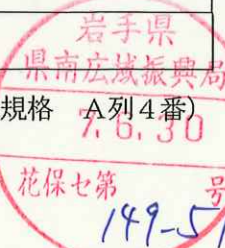 岩手県
県南広域振興局
規格　A列4番)
7.6.30
花保セ第　　号
149-51